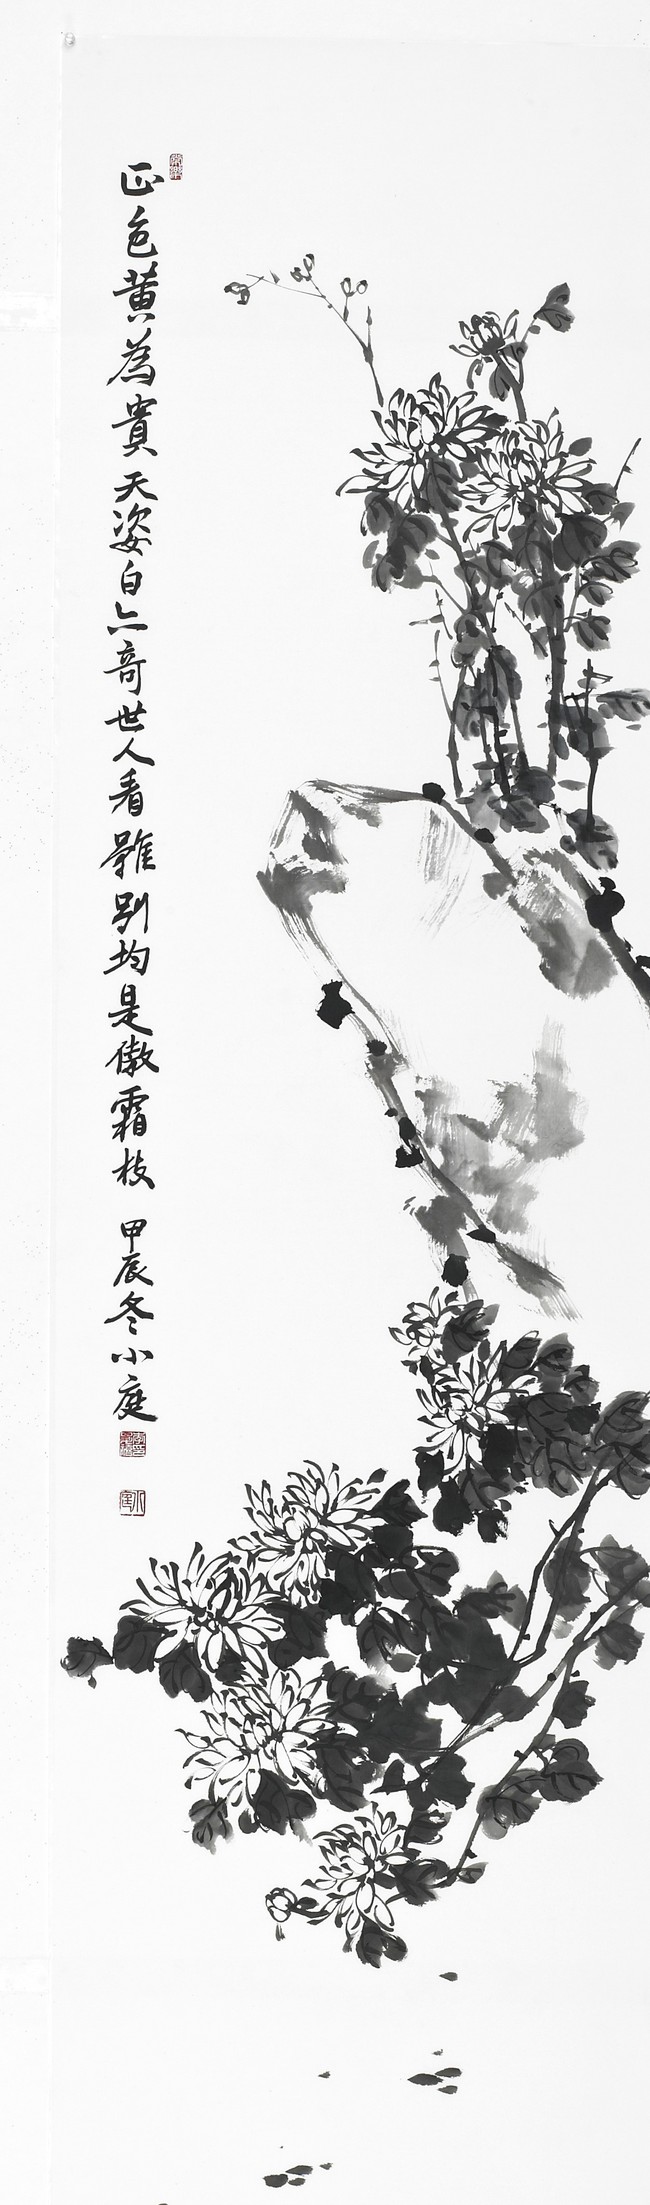 正色黄為貴天姿白亦奇世人看雖別均是傲霜枝
甲辰冬小庭
小庭